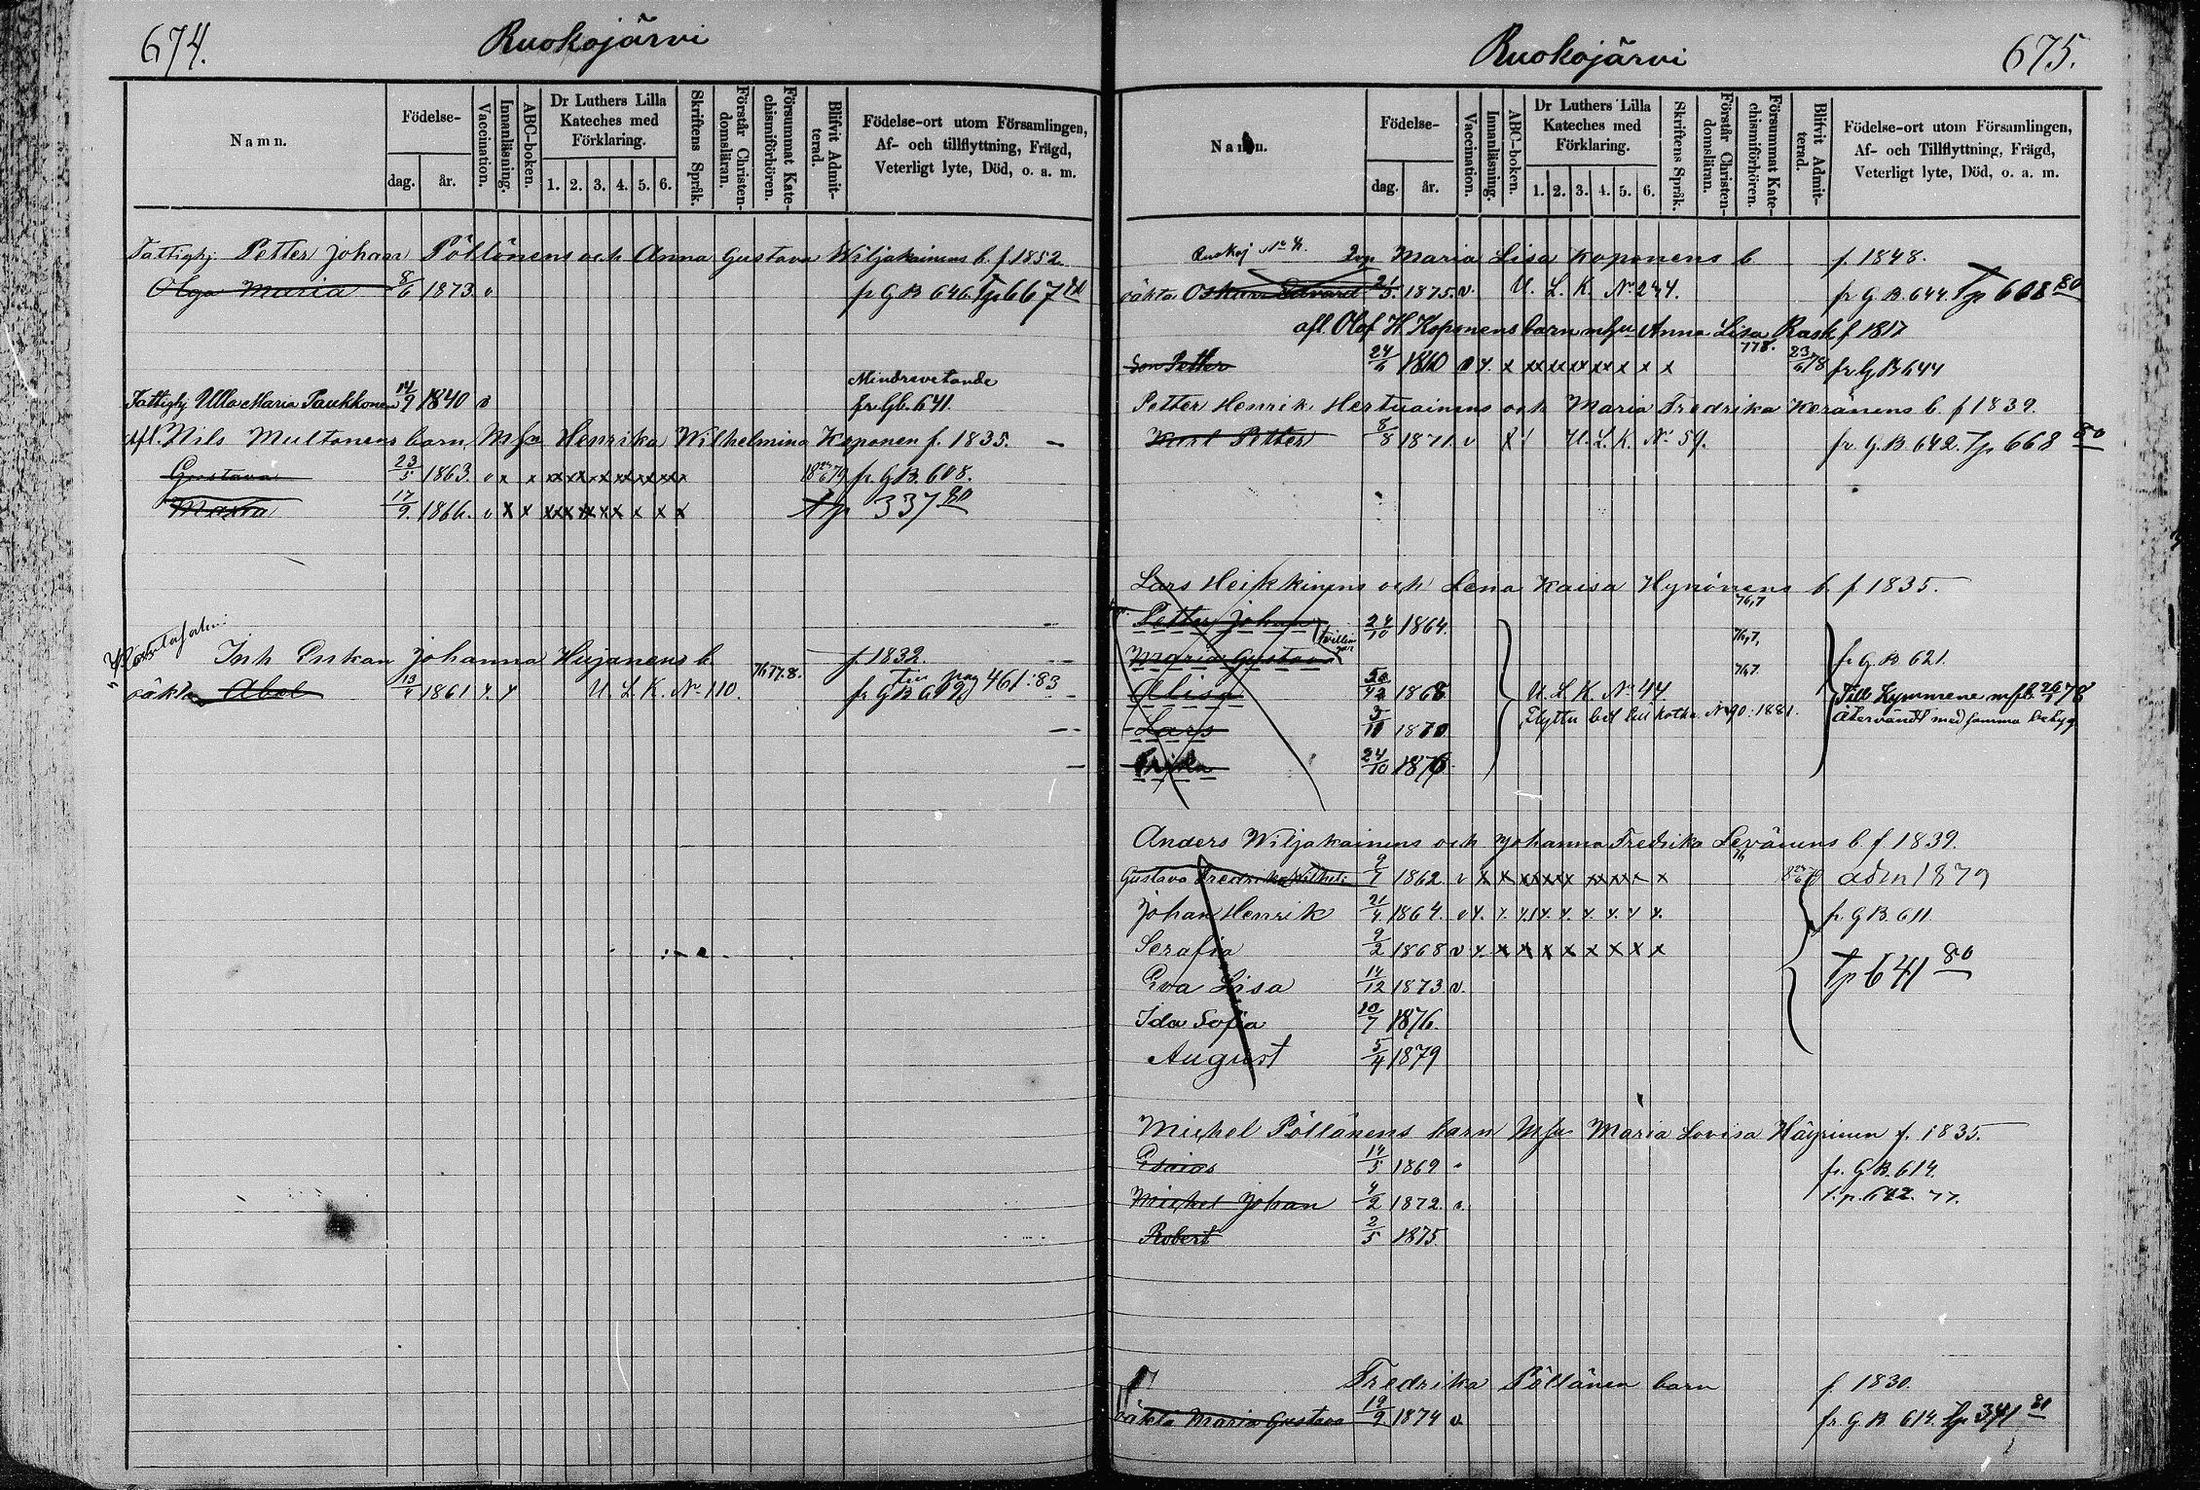 674.
Ruokojärvi
Namn.
Födelse-
dag.
år.
Vaccination.
Innanläsning.
ABC-boken.
Dr Luthers Lilla
Kateches med
Förklaring.
1. 2. 3. 4. 5. 6.
Skriftens Språk.
Förstår Christen-
domsläran.
Försummat Kate-
chismiförhören.
Blifvit Admit-
terad.
Födelse-ort utom Församlingen,
Af- och tillflyttning, Frägd,
Veterligt lyte, Död, o. a. m.
Fattighj Petter Johan Pöllönens och Anna Gustava Wiljakainens b. f. 1852.
Olga Maria 8/6 1873 v fr G B 646. Tp 667
Mindrevetande
Fattighj Ulla Maria Paukkonen 14/9 1840 v fr. Gb. 641.
afl. Nils Multonens barn, Mfa Henrika Wilhelmina Koponen f. 1835. -
Gustava 23/5 1863. v x x x x x x x x x x 18 79 fr. G B. 608.
Maria 17/9 1866. v x x x x x x x x x x Tp 337 80
Inh Enkan Johanna Hujanens b. f. 1832.
oäkta Abel 13/4 1861 x. x U. L. K. No 110. 76.77.8. fr G B 692 pag 461:83
675.
Ruokojärvi
Namn.
Födelse-
dag.
år.
Vaccination.
Innanläsning.
ABC-boken.
Dr Luthers Lilla
Kateches med
Förklaring.
1. 2. 3. 4. 5. 6.
Skriftens Språk.
Förstår Christen-
domsläran.
Försummat Kate-
chismiförhören.
Blifvit Admit-
terad.
Födelse-ort utom Församlingen,
Af- och Tillflyttning, Frägd,
Veterligt lyte, Död, o. a. m.
Ruokoj No 4. Maria Lisa Koponens b f. 1848.
oäkta Oskar Edvard 21/5. 1875. v. U. L. K. No 274. fr G. B. 644. Tp 668 80
afl. Olof H Koponens barn mfu Anna Lisa Rask f 1817
Son Petter 24/6 1860 v x. x x x x x x x x x 778. 23/6 78 fr G B 644
Petter Henrik Hertuainens och Maria Fredrika Keränens b. f 1839.
Karl Petter 8/8 1871. v x U. L. K. No 59. fr. G. B. 642. Tp 668 80
Lars Heikkinens och Lena Kaisa Hynönens b. f 1835.
76,7
Petter Johan 24/10 1864. 76,7,
Maria Gustava fr G. B. 621.
76,7
Alisa 1868 U. L. K No 44. Till Kymmene mfb 26/1 78
Lars 1870 Flyttn bet till Kotka No 90: 1881. återvändt med samma betyg
Frida 24/10 1876
Anders Wiljakainens och Johanna Fredrika Levänens b. f 1839.
Gustava Fredrika Vilhel. 9/7 1862 v x x x x x x x x x x adm 1879
Johan Henrik 21/4 1864. v x. x. x x x. x. x. x x. fr. G B. 611
Serafia 9/2 1868 v x. x x x x x x x x
Eva Lisa 14/12 1873 v. Tp 641 80
Ida Sofia 10/7 1876.
August 5/4 1879
Michel Pöllänens barn Mfu Maria Lovisa Häyrinen f. 1835.
Esaias 14/5 1869 fr. G B. 614.
Michel Johan 4/2 1872. v. t. p. 642. 77.
Robert 2/5 1875
Fredrika Pöllänen barn f 1830.
oäkta Maria Gustava 19/9 1874 v. fr G B 614. Tp 341 81